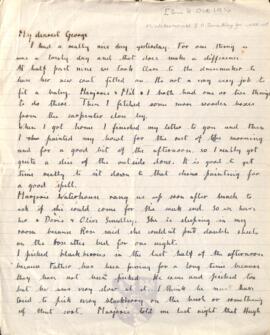 My dearest George
I had a really nice day yesterday. For one thing it
was a lovely day and that does make a difference.
At half past nine we took Clare to the dressmaker to
have her new coat fitted on. It's not a very easy job to
fit a baby. Marjorie & I both had one or two things
to do there. Then I fetched some more wooden boxes
from the carpenter close by.
When I got home I finished my letter to you and then
I painted my boat for the rest of the morning
and for a good bit of the afternoon, so I really got
quite a slice of the outside done. It is good to get
time really to sit down to that when painting for
a good spell.
Marjorie Waterhouse rang us up soon after lunch to
ask if she could come for the week end. So we have
her & Doris & Olive Smalley. She is sleeping in my
room because Rose said she couldn't put double sheets
on the two other bed for one night.
I picked blackberries in the last half of the afternoon
because Father has been pining for a long time because
they have not been picked. He came and fetched too
but he was very slow at it. I think he must have
tried to pick every blackberry on the bush or something
of that sort. Marjorie told me last night that Hugh